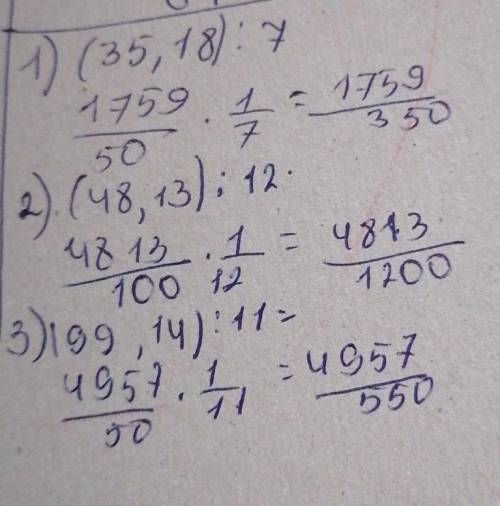 1) (35,18) : 7
1759/50 · 1/7 = 1759/350
2) (48,13) : 12.
4813/100 · 1/12 = 4813/1200
3) (99,14) : 11 =
4957/50 · 1/11 = 4957/550